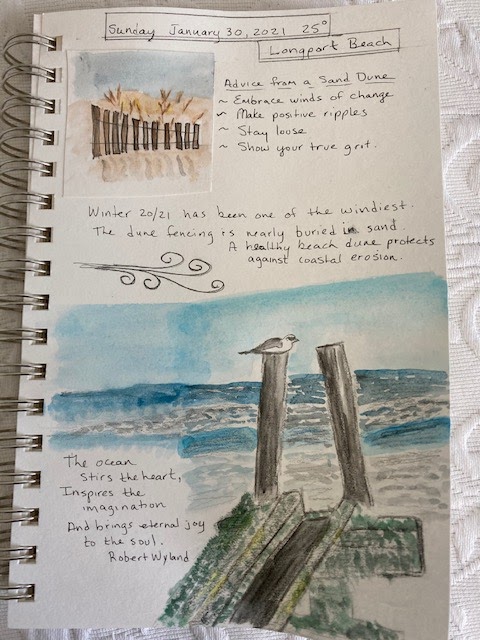 Sunday January 30, 2021 25°
Longport Beach
Advice from a Sand Dune
~ Embrace winds of change
~ Make positive ripples
~ Stay loose
~ Show your true grit.
Winter 20/21 has been one of the windiest.
The dune fencing is nearly buried in sand.
A healthy beach dune protects
against coastal erosion.
The ocean
Stirs the heart,
Inspires the
imagination
And brings eternal joy
to the soul.
Robert Wyland